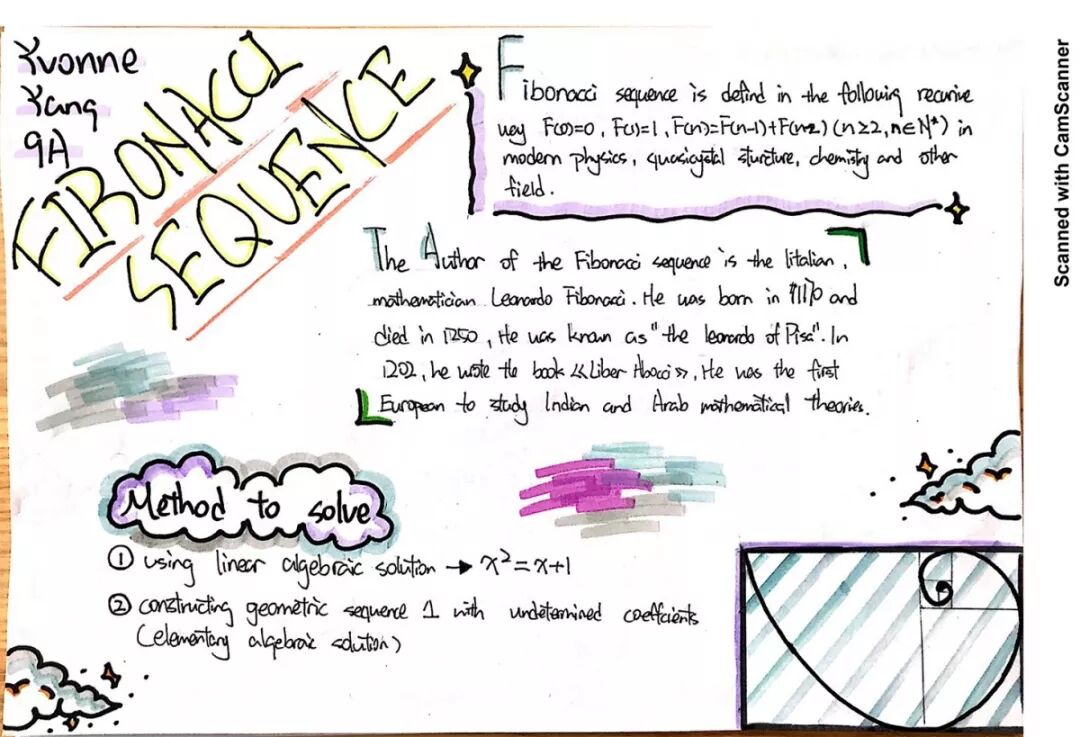 Yvonne
Yang
9A
FIBONACCI
SEQUENCE
Fibonacci sequence is defind in the following recurive
wey F(0)=0, F(1)=1, F(n)=F(n-1)+F(n-2) (n≥2, n∈N*) in
modern physics, quasicystal sturcture, chemistry and other
field.
The Author of the Fibonacci sequence is the litalian,
mathematician Leonardo Fibonacci. He was born in and
died in 1250, He was known as "the leonardo of Pisa". In
1202, he wrote the book 《Liber Abaci》, He was the first
European to study Indian and Arab mathematical theories.
Method to solve
① using linear algebraic solution → x²=x+1
② constructing geometric sequence 1 with undetermined coefficients
(elementary algebraic solution)
Scanned with CamScanner